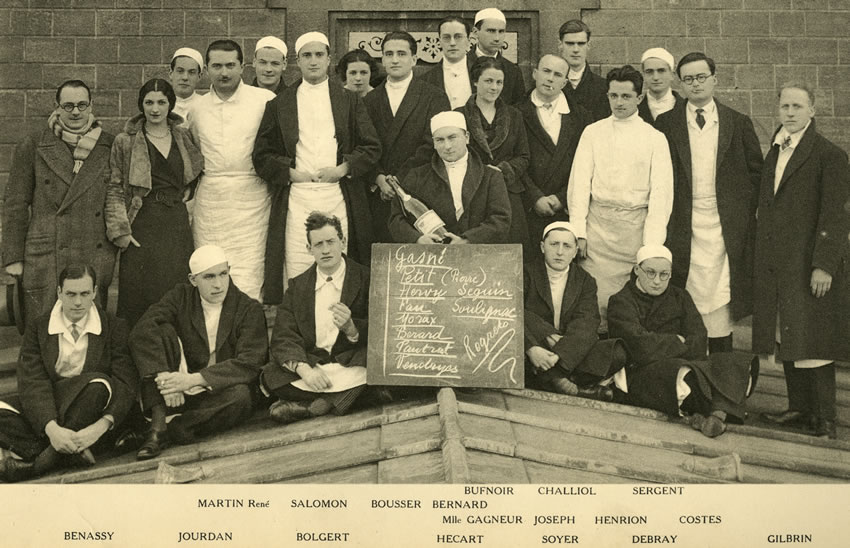 Gasné
Petit (Pierre)
Hervy Seguin
Soulignac
Morax
Berard
Tautrat
Vendryès
Regnets
BUFNOIR CHALLIOL SERGENT
MARTIN René SALOMON BOUSSER BERNARD
Mlle GAGNEUR JOSEPH HENRION COSTES
BENASSY JOURDAN BOLGERT HECART SOYER DEBRAY GILBRIN